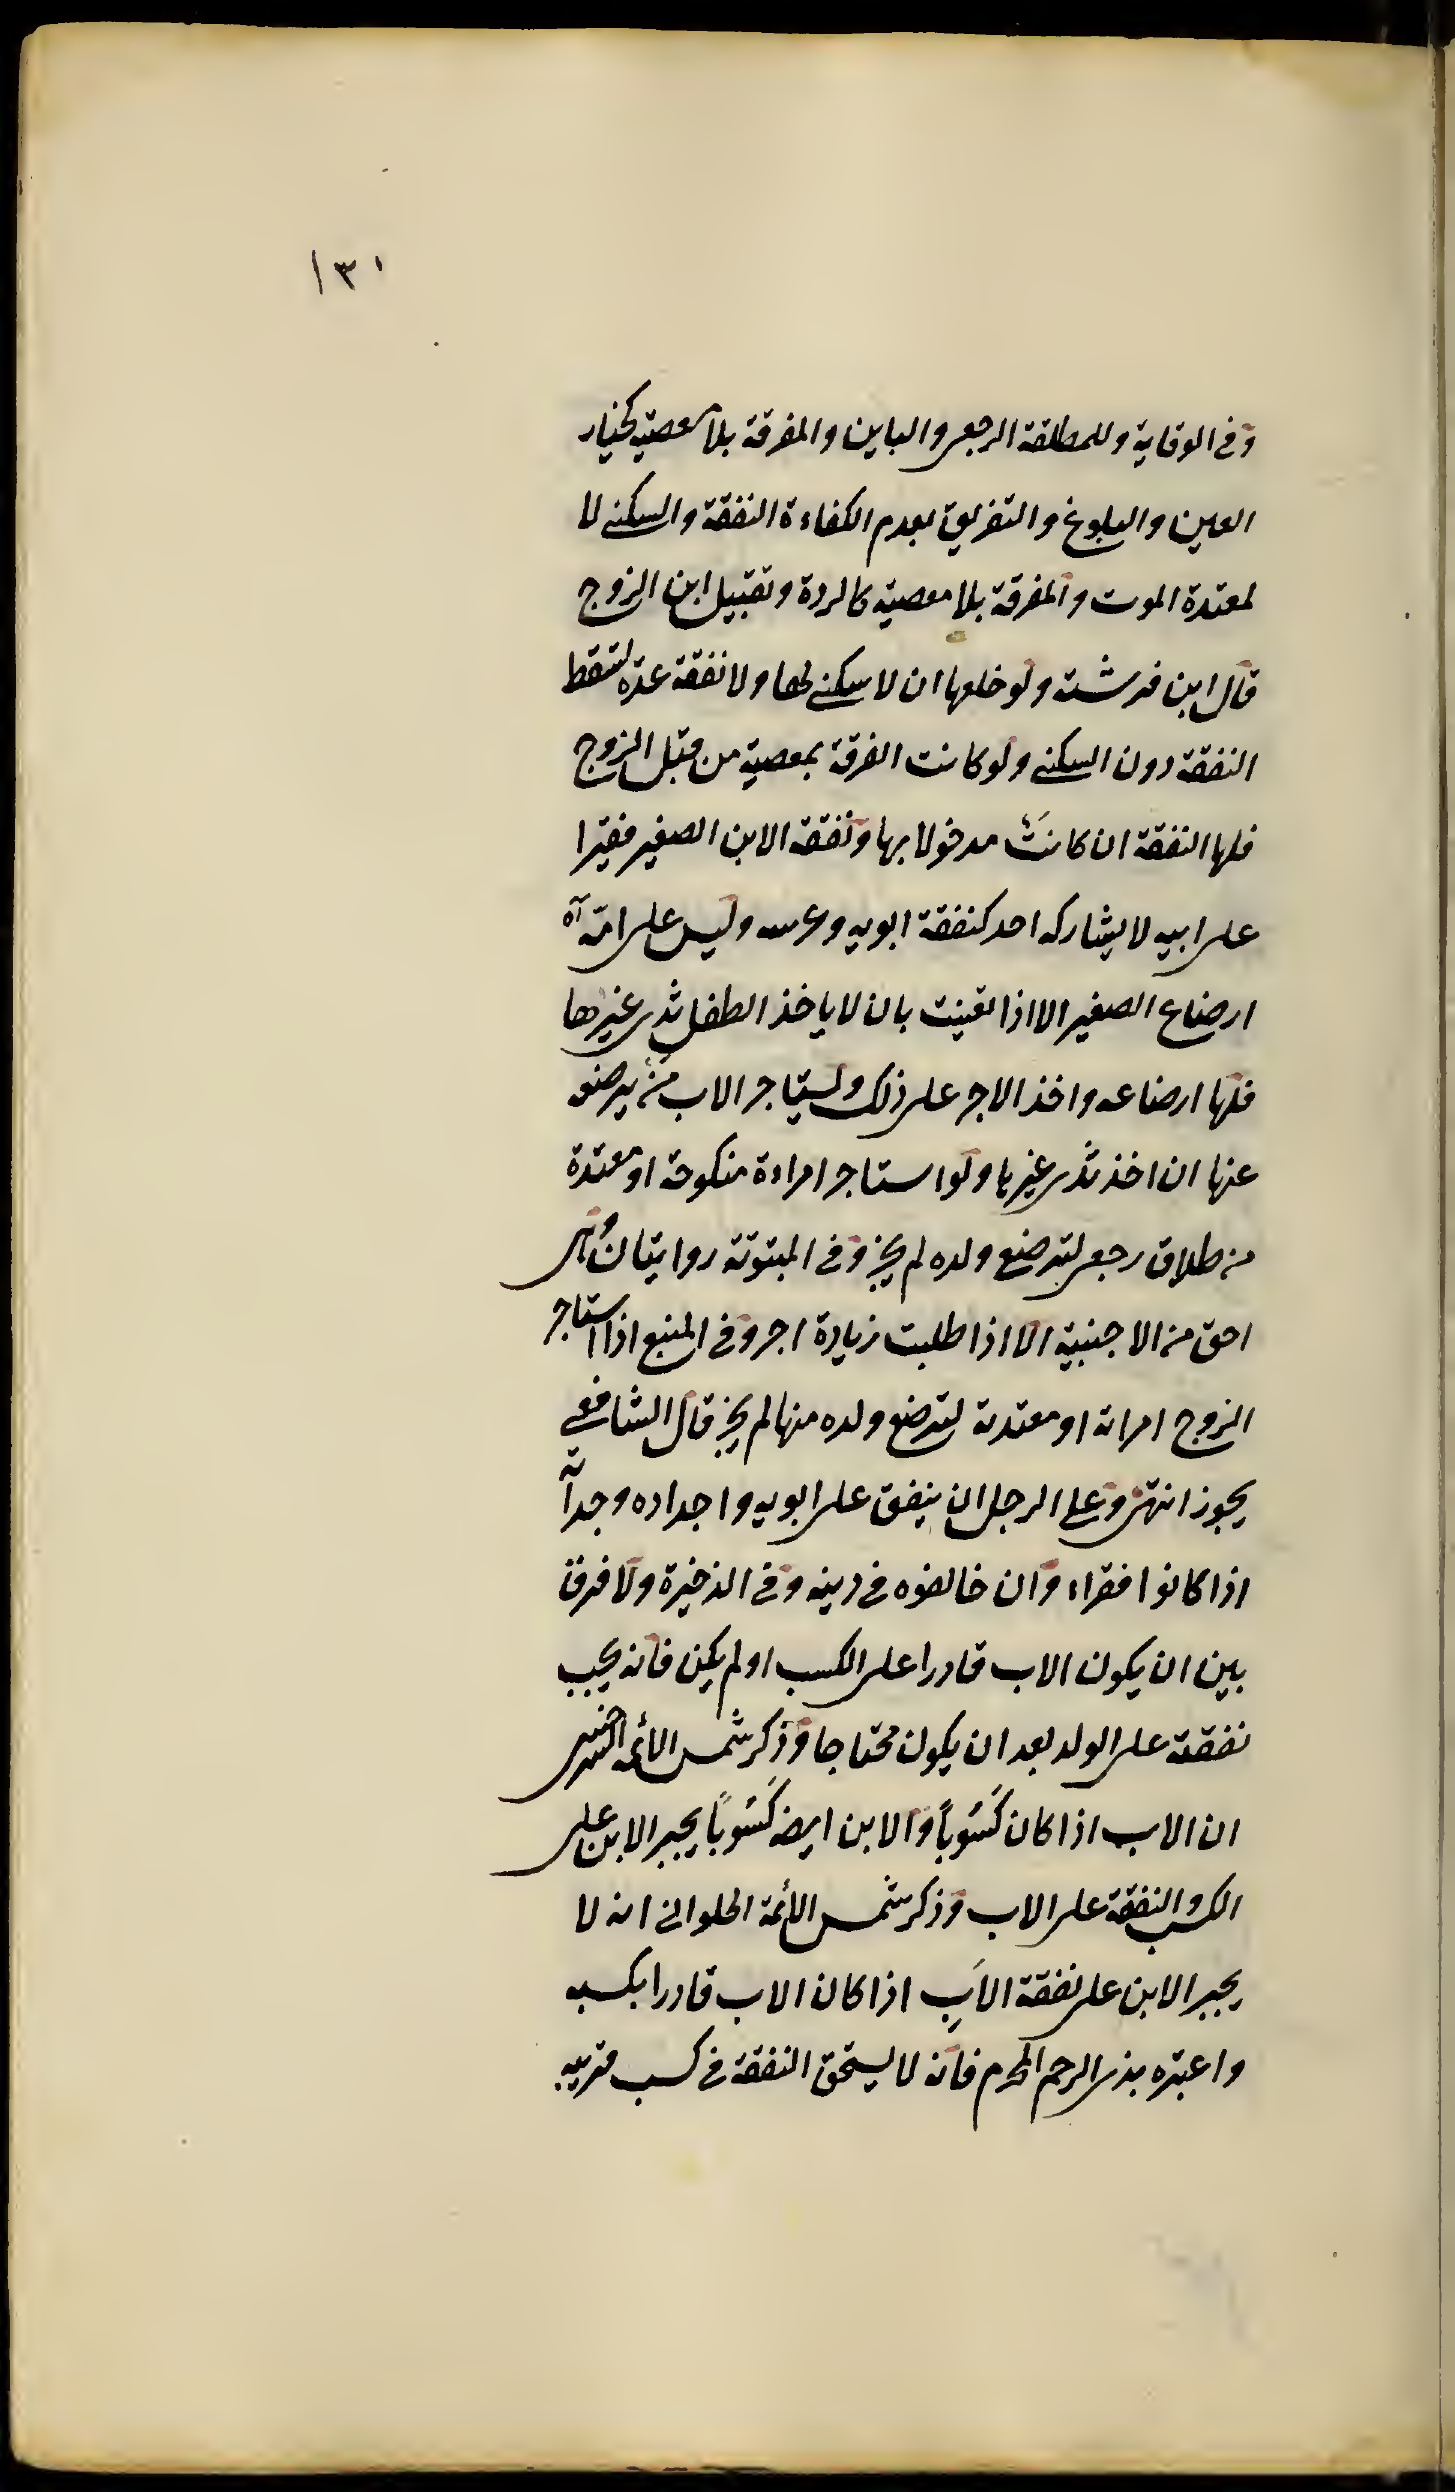 ١٣١
وفى الوقاية وللمطلقة الرجعى والباين والمفرقة بلا معصية كخيار
العين والبلوغ والتفريق بعدم الكفاءة النفقة والسكنى لا
لمعتدة الموت والمفرقة بلا معصية كالردة وتقبيل ابن الزوج
قال ابن فرشته ولو خلعها ان لا سكنى لها ولا نفقة عدة تسقط
النفقة دون السكنى ولو كانت الفرقة بمعصية من قبل الزوج
فلها النفقة ان كانت مدخولا بها ونفقة الابن الصغير فقيرا
على ابيه لا يشاركه احد كنفقة ابويه وعرسه وليس على امه
ارضاع الصغير الا اذا تعينت بان لا ياخذ الطفل ثدى غيرها
فلها ارضاعه واخذ الاجر على ذلك ويستاجر الاب من يرضعه
عنها ان اخذ ثدى غيرها ولو استاجر امراءة منكوحة او معتدة
من طلاق رجعى لترضع ولده لم يجز وفى المبتوتة روايتان وهى
احق من الاجنبية الا اذا طلبت زيادة اجر وفى المنبع اذا استاجر
الزوج امراته او معتدته لترضع ولده منها لم يجز قال الشافعى
يجوز انتهى وعلى الرجل ان ينفق على ابويه واجداده وجداته
اذا كانوا فقراء وان خالفوه فى دينه وفى الذخيرة ولا فرق
بين ان يكون الاب قادرا على الكسب او لم يكن فانه يجب
نفقته على الولد بعد ان يكون محتاجا وذكر شمس الأئمة السرخسى
ان الاب اذا كان كَسُوباً والابن ايضه كَسُوباً يجبر الابن على
الكسب والنفقة على الاب وذكر شمس الأئمة الحلوانى انه لا
يجبر الابن على نفقة الاَبِ اذا كان الاب قادرا بكسبه
واعتبره بذى الرحم المحرم فانه لا يستحق النفقة فى كسب قريبه